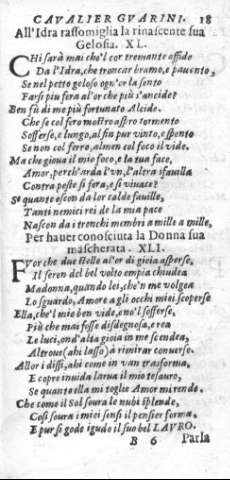 CAVALIER GVARINI. 18
All'Idra rassomiglia la rinascente sua
Gelosia. XL.
CHi sarà mai che'l cor tremante affide
Da l'Idra, che troncar bramo, e pauento,
Se nel petto geloso ogn'or la sento
Farsi piu fera al'or che più s'ancide?
Ben fù di me più fortunato Alcide.
Che se col fero mostro aspro tormento
Sofferse, e lungo, al fin pur vinto, e spento
Se non col ferro, almen col foco il vide.
Ma che gioua il mio foco, e la tua face,
Amor, perch'arda l'vn, l'altra sfauilla
Contra peste sì fera, e sì viuace?
Se quanto escon da lor calde fauille,
Tanti nemici rei de la mia pace
Nascon da i tronchi membri a mille a mille,
Per hauer conosciuta la Donna sua
mascherata. XLI.
FVor che due stelle al'or di gioia asperse,
Il seren del bel volto empia chiudea
Madonna, quando lei, che'n me volgea
Lo sguardo, Amore a gli occhi miei scoperse
Ella, che'l mio ben vide, e no'l sofferse,
Più che mai fosse disdegnosa, e rea
Le luci, ond'alta gioia in me scendea,
Altroue (ahi lasso) à rimirar conuerse.
Allor i dissi, ahi come in van trasforma,
E copre inuida larua il mio tesauro,
Se quanto ella mi toglie Amor mi rende.
Che come il Sol soura le nubi splende,
Così soura i miei sensi il pensier forma,
E pur si gode igudo il suo bel LAVRO.
B 6 Parla